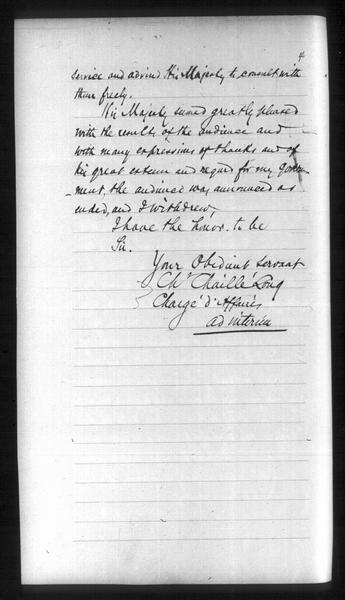 4
service and advised His Majesty to consult with
them freely.
His Majesty seemed greatly pleased
with the results of the audience and
with many expressions of thanks and of
his great esteem and regard for my Govern-
-ment, the audience was announced as
ended, and I withdrew,
I have the honor to be
Sir.
Your Obedient servant
Ch. Chaillé Long
Chargé d'Affaires
ad interim